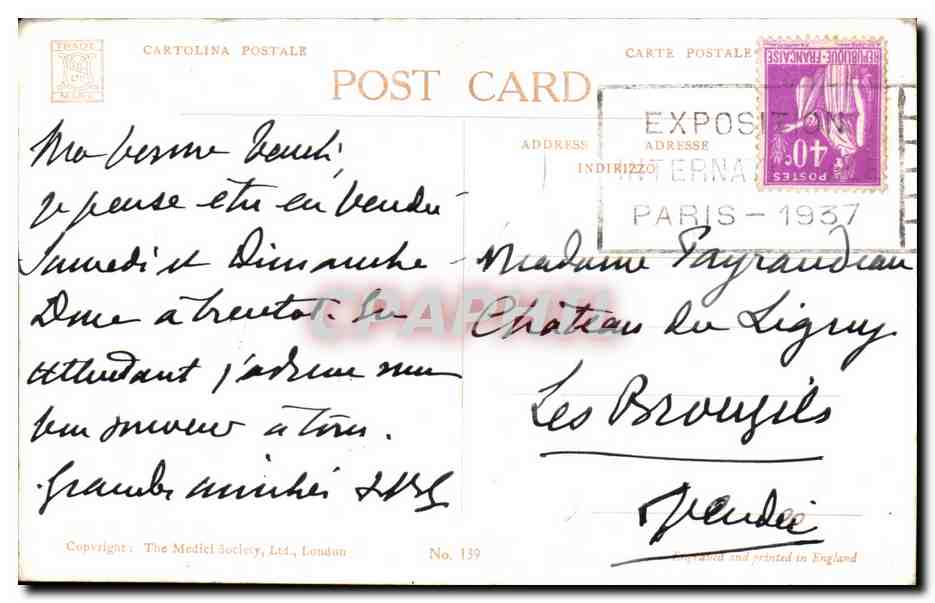 TRADE
MARK
CARTOLINA POSTALE
CARTE POSTALE
POST CARD
ADDRESS
ADRESSE
INDIRIZZO
REPUBLIQUE FRANÇAISE
40c
POSTES
EXPOSITION
INTERNAT
PARIS - 1937
Ma bonne
je pense être en Vendée
Samedi et Dimanche
Donc à bientôt. En
attendant j'adresse mon
bon souvenir à tous.
Grandes amitiés
Madame Payraudeau
Château du Ligny
Les Brouzils
Vendée
CPAPHIL
Copyright: The Medici Society, Ltd., London
No. 139
Engraved and printed in England